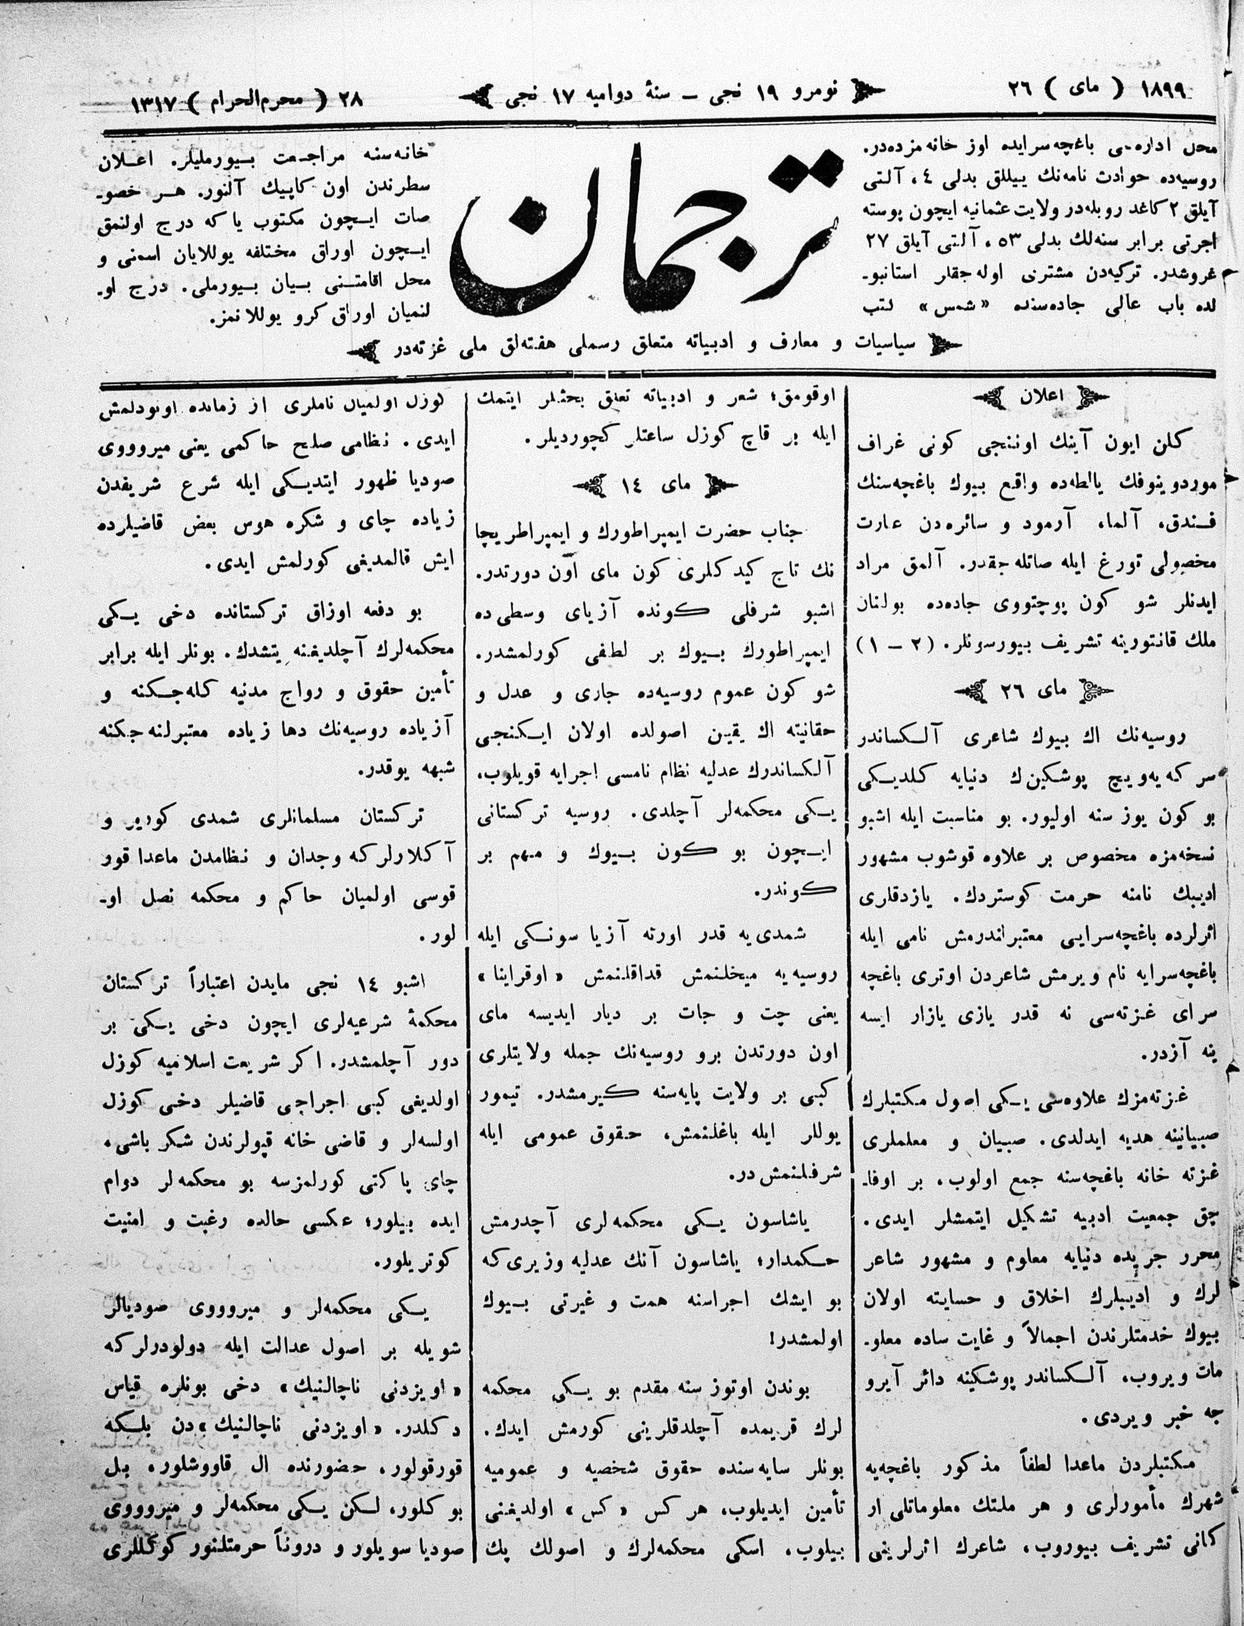 ١٨٩٩ ( مای ) ٢٦
نومرو ١٩ نجی ــ سنهٔ دوامیه ١٧ نجی
٢٨ ( محرم‌الحرام ) ١٣١٧
محل اداره‌سی باغچه‌سرایده اوز خانه مزده‌در.
روسیه‌ده حوادث نامه‌نك ییللق بدلی ٤ ، آلتی
آیلق ٢ كاغد روبله‌در ولایت عثمانیه ایچون پوسته
اجرتی برابر سنه‌لك بدلی ٥٣ ، آلتی آیلق ٢٧
غروشدر. تركیه‌دن مشتری اوله جقلر استانبو‍ـ
لده باب عالی جاده‌سنده «شمس» كتب
ترجمان
خانه‌سنه مراجعت بیورملیلر. اعلان
سطرندن اون كاپیك آلنور. هر خصو‍ـ
صات ایچون مكتوب یا كه درج اولنمق
ایچون اوراق مختلفه یوللایان اسمنی و
محل اقامتنی بیان بیورملی. درج او‍ـ
لنمیان اوراق كرو یوللانمز.
سیاسیات و معارف و ادبیاته متعلق رسملی هفته‌لق ملی غزته‌در
اعلان
كلن ایون آینك اوننجی كونی غراف
موردوینوفك یالطه‌ده واقع بیوك باغچه‌سنك
فندق، آلما، آرمود و سائره‌دن عبارت
محصولی تورغ ایله صاتله جقدر. آلمق مراد
ایدنلر شو كون پوچتووی جاده‌ده بولنان
ملك قانتورینه تشریف بیورسونلر. (٢ ــ ١)
مای ٢٦
روسیه‌نك اك بیوك شاعری آلكساندر
سركه‌یه‌ویچ پوشكین‌ك دنیایه كلدیكی
بو كون یوز سنه اولیور. بو مناسبت ایله اشبو
نسخه‌مزه مخصوص بر علاوه قوشوب مشهور
ادیبك نامنه حرمت كوستردك. یازدقاری
اثرلرده باغچه‌سرایی معتبراندرمش نامی ایله
باغچه‌سرایه نام ویرمش شاعردن اوتری باغچه
سرای غزته‌سی نه قدر یازی یازار ایسه
ینه آزدر.
غزته‌مزك علاوه‌سی یكی اصول مكتبلرك
صبیانینه هدیه ایدلدی. صبیان و معلملری
غزته خانه باغچه‌سنه جمع اولوب، بر اوفا‍ـ
جق جمعیت ادبیه تشكیل ایتمشلر ایدی.
محرر جریده دنیایه معلوم و مشهور شاعر
لرك و ادیبلرك اخلاق و حسایته اولان
بیوك خدمتلرندن اجمالاً و غایت ساده معلو‍ـ
مات ویروب، آلكساندر پوشكینه دائر آیرو
جه خبر ویردی.
مكتبلردن ماعدا لطفاً مذكور باغچه‌یه
شهرك مأمورلری و هر ملتك معلوماتلی ار
كانی تشریف بیوروب، شاعرك اثرلرینی
اوقومق؛ شعر و ادبیاته تعلق بحثلر ایتمك
ایله بر قاچ كوزل ساعتلر كچوردیلر.
مای ١٤
جناب حضرت ایمپراطورك و ایمپراطریچا
نك تاج كیدكلری كون مای اون دورتدر.
اشبو شرفلی كونده آزیای وسطی ده
ایمپراطورك بیوك بر لطفی كورلمشدر.
شو كون عموم روسیه‌ده جاری و عدل و
حقانیته اك یقین اصولده اولان ایكنجی
آلكساندرك عدلیه نظام نامسی اجرایه قویلوب،
یكی محكمه‌لر آچلدی. روسیه تركستانی
ایچون بو كون بیوك و مهم بر
كوندر.
شمدی‌یه قدر اورته آزیا سونكی ایله
روسیه‌یه میخلنمش قداقلنمش «اوقراینا»
یعنی چت و جات بر دیار ایدیسه مای
اون دورتدن برو روسیه‌نك جمله ولایتلری
كبی بر ولایت پایه‌سنه كیرمشدر. تیمور
یوللر ایله باغلنمش، حقوق عمومی ایله
شرفلنمش در.
یاشاسون یكی محكمه‌لری آچدرمش
حكمدار؛ یاشاسون آنك عدلیه وزیری كه
بو ایشك اجراسنه همت و غیرتی بیوك
اولمشدر!
بوندن اوتوز سنه مقدم بو یكی محكمه
لرك قریمده آچلدقلرینی كورمش ایدك.
بونلر سایه‌سنده حقوق شخصیه و عمومیه
تأمین ایدیلوب، هر كس «كس» اولدیغنی
بیلوب، اسكی محكمه‌لرك و اصولك پك
كوزل اولمیان ناملری از زمانده اونودلمش
ایدی. نظامی صلح حاكمی یعنی میرووووی
صودیا ظهور ایتدیكی ایله شرع شریفدن
زیاده چای و شكره هوس بعض قاضیلرده
ایش قالمدیغی كورلمش ایدی.
بو دفعه اوزاق تركستانده دخی یكی
محكمه‌لرك آچلدیغنه یتشدك. بونلر ایله برابر
تأمین حقوق و رواج مدنیه كله‌جكنه و
آزیاده روسیه‌نك دها زیاده معتبرلنه جكنه
شبهه یوقدر.
تركستان مسلمانلری شمدی كوریر و
آكلارلر كه وجدان و نظامدن ماعدا قور
قوسی اولمیان حاكم و محكمه نصل او‍ـ
لور.
اشبو ١٤ نجی مایدن اعتباراً تركستان
محكمهٔ شرعیه‌لری ایچون دخی یكی بر
دور آچلمشدر. اكر شریعت اسلامیه كوزل
اولدیغی كبی اجراجی قاضیلر دخی كوزل
اولسه‌لر و قاضی خانه قپولرندن شكر باشی،
چای پاكتی كورلمزسه بو محكمه‌لر دوام
ایده بیلور؛ عكسی حالده رغبت و امنیت
كوتریلور.
یكی محكمه‌لر و میرووووی صودیالر
شویله بر اصول عدالت ایله دولودرلر كه
«اویزدنی ناچالنیك» دخی بونلره قیاس
دكلدر. «اویزدنی ناچالنیك»دن بلكه
قورقولور، حضورنده ال قاووشلور، بل
بوكلور، لكن یكی محكمه‌لر و میرووووی
صودیا سویلور و دروناً حرمتلنور كوكللری